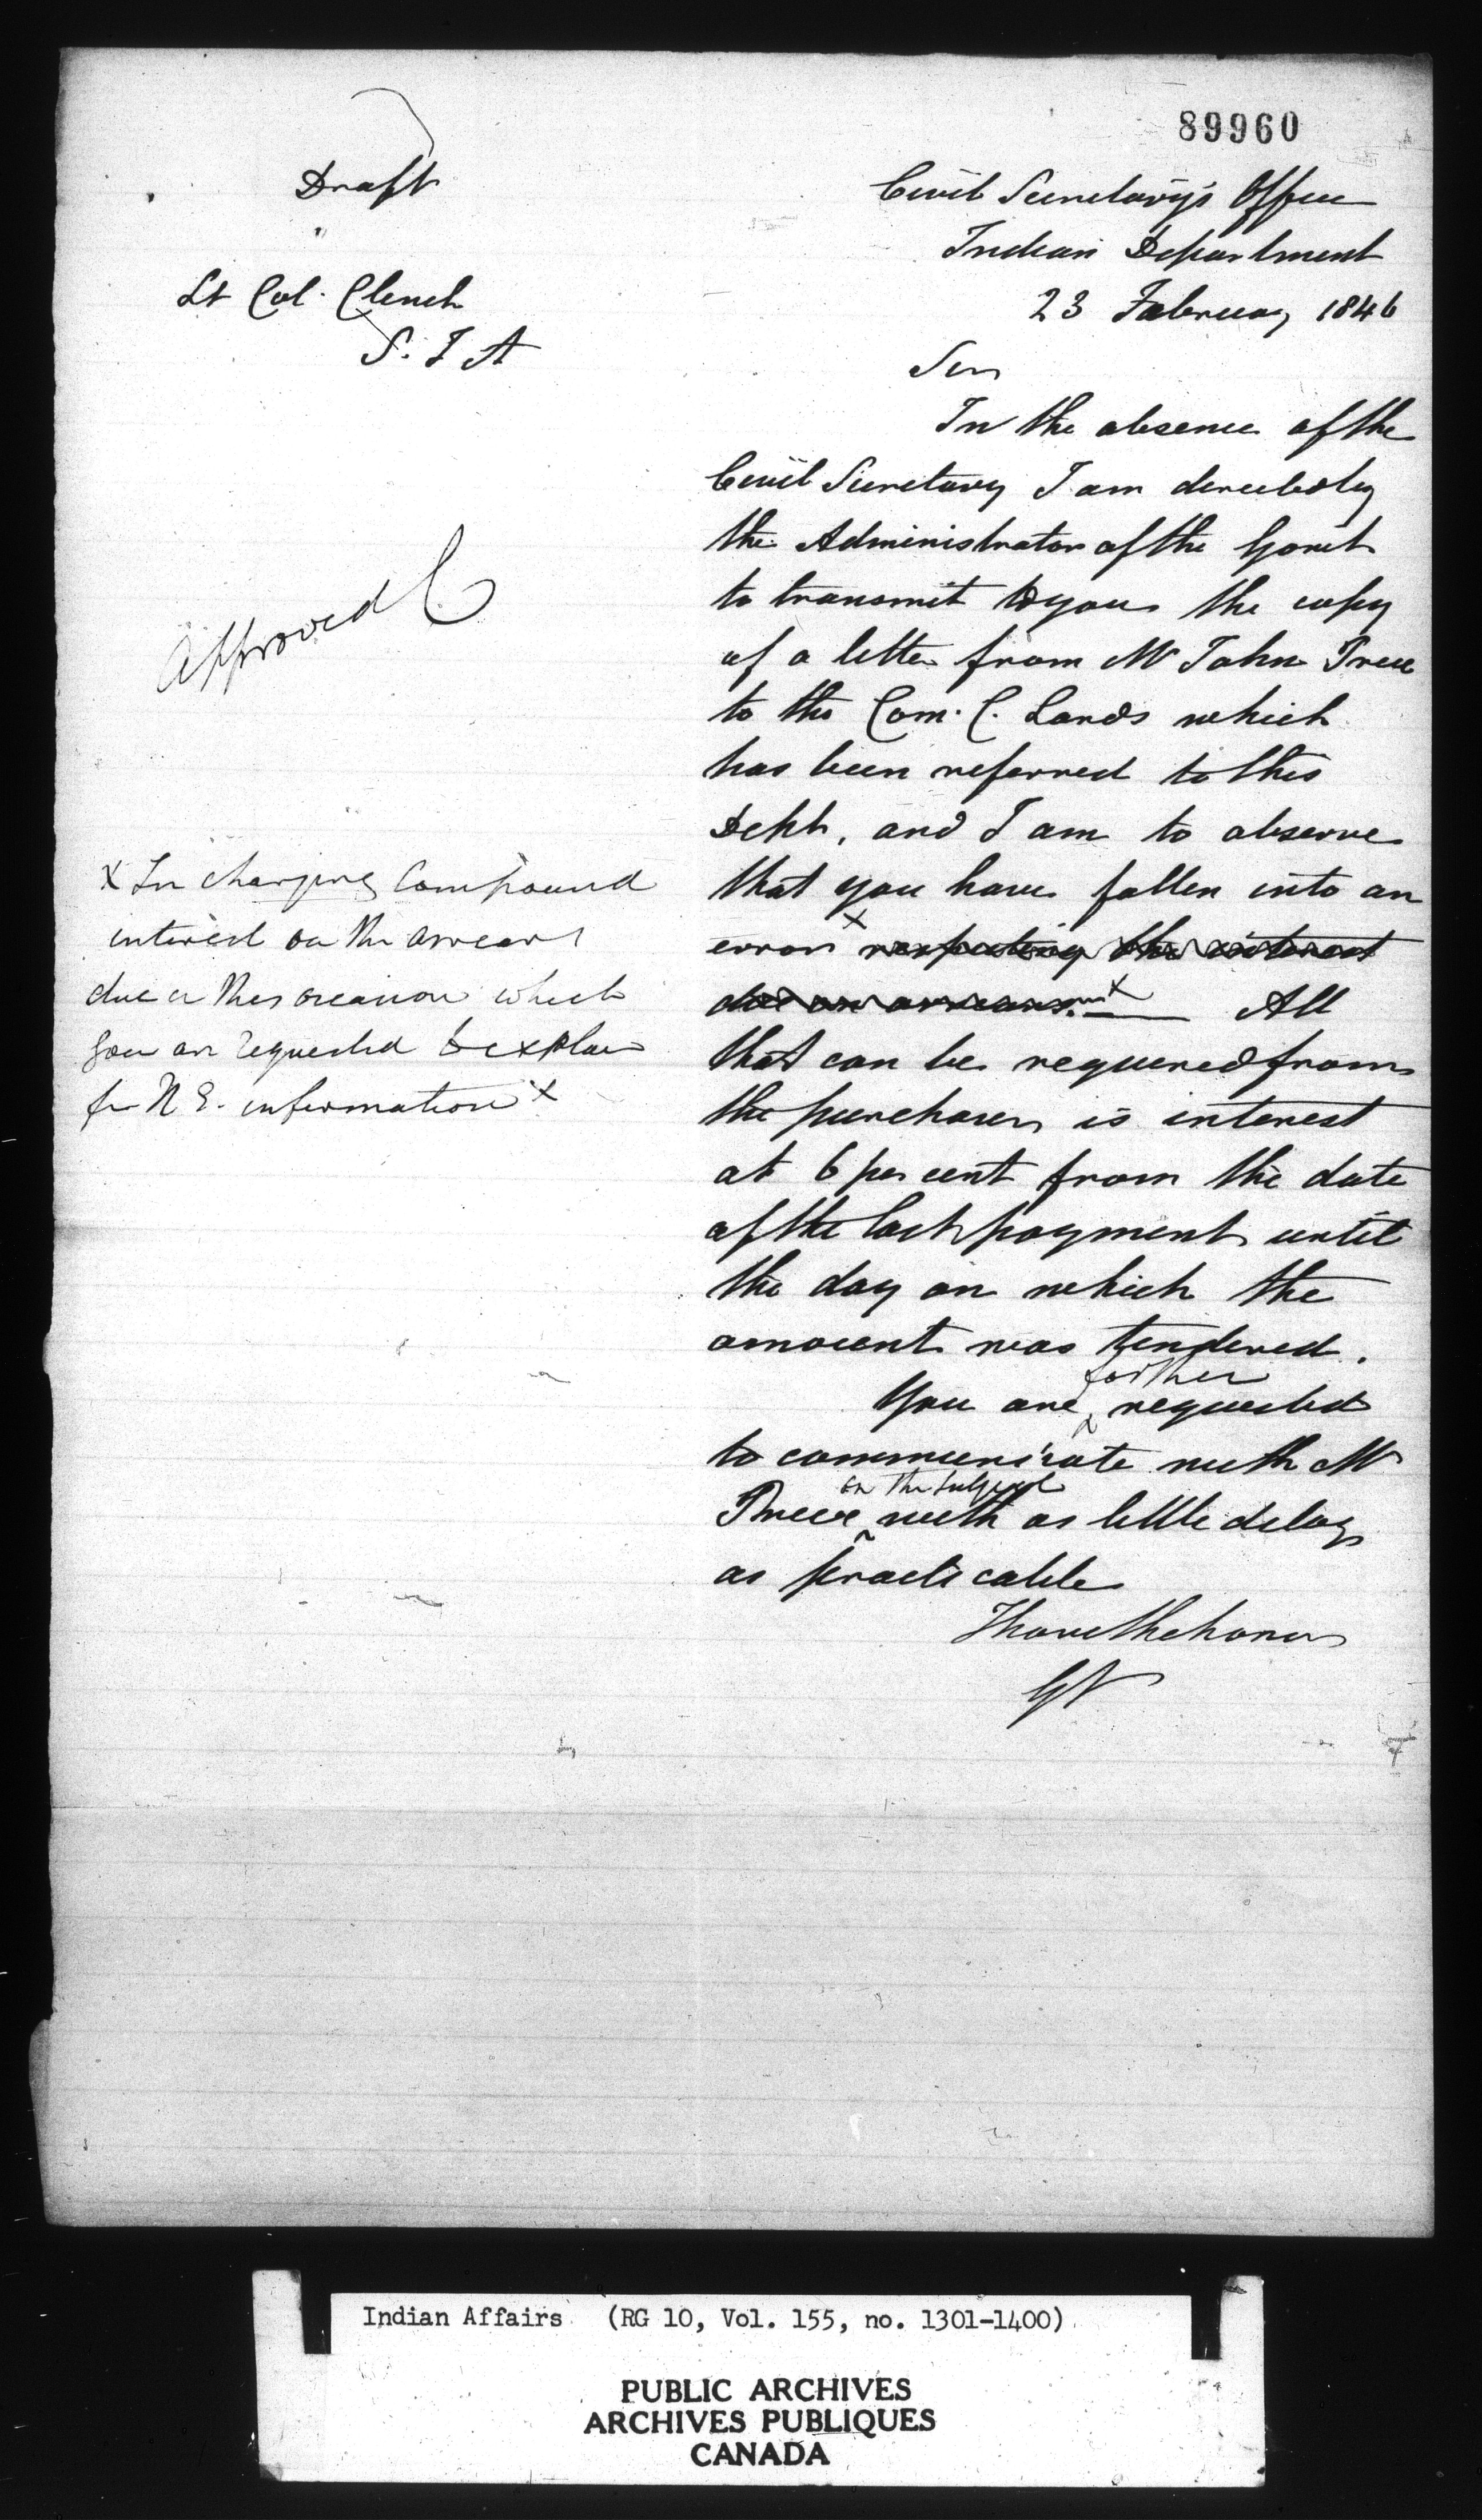 89960
Draft
"
Lt Col. Clench
S. I A
Civil Secretary's Office
Indian Department
23 February 1846
Sir
In the absence of the
Civil Secretary I am directed by
the Administrator of the Govnt
to transmit to you the copy
of a letter from Mr John
to the Com. C. Lands which
has been referred to this
Dept, and I am to observe
that you have fallen into an
error x respecting the interest
due on arrears. x All
that can be required from
the purchaser is interest
at 6 per cent from the date
of the last payment until
the day on which the
amount was tendered.
further
You are requested
to communicate with Mr
on the subject
with as little delay
as practicable
I have the honor
GV
Approved C
x In charging Compound
interest on the arrears
due on this occasion which
you are requested to explain
for H E. information x
Indian Affairs (RG 10, Vol. 155, no. 1301-1400)
PUBLIC ARCHIVES
ARCHIVES PUBLIQUES
CANADA